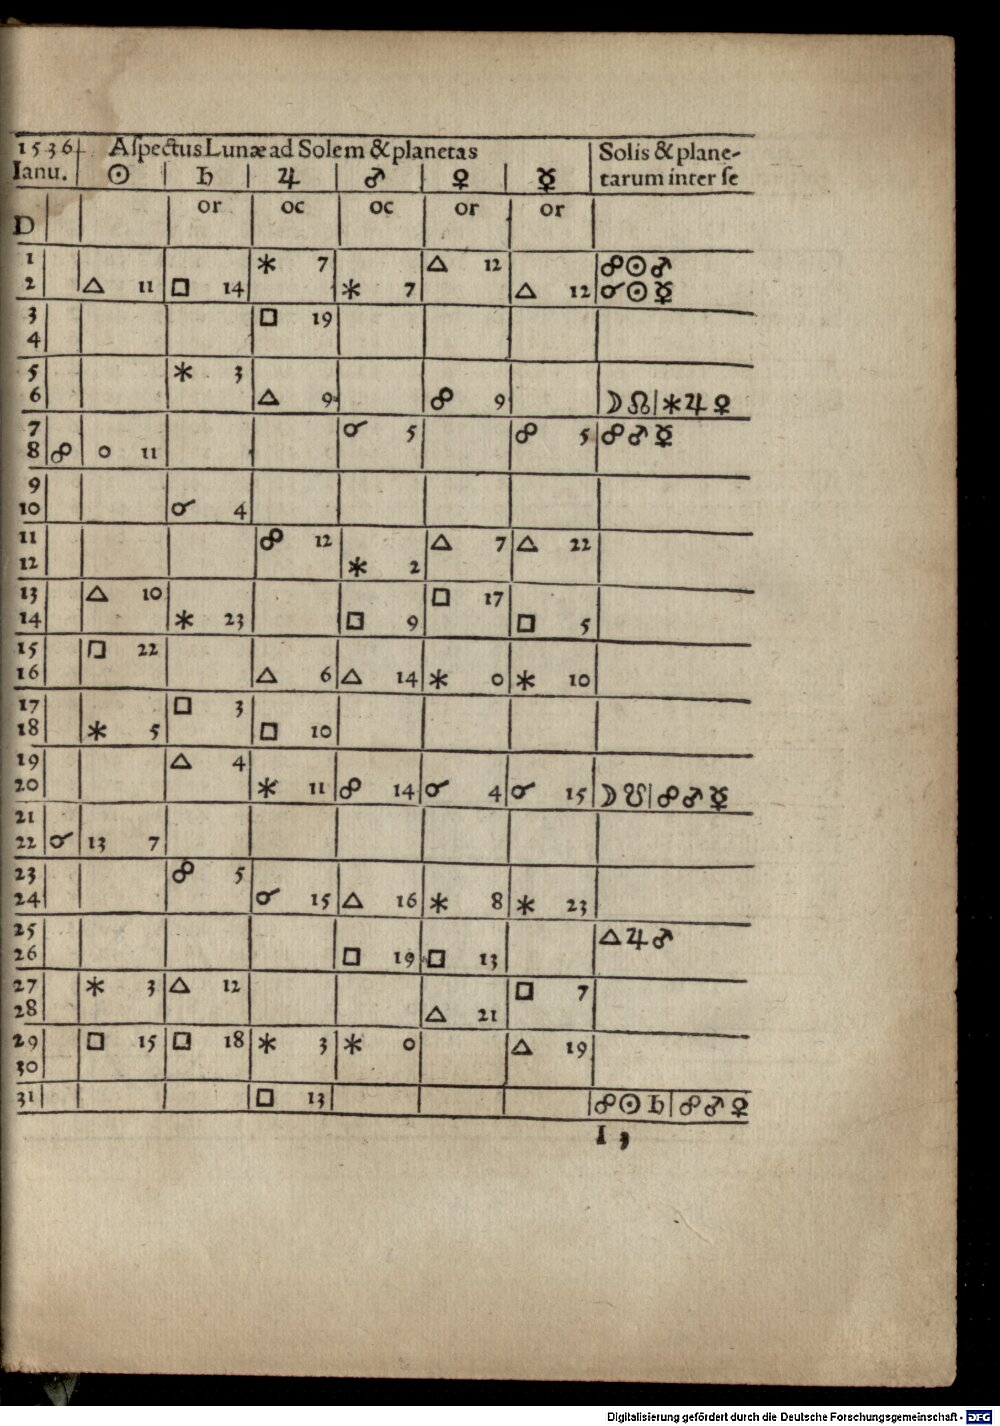 1536 Aſpectus Lunæ ad Solem & planetas Solis & plane-
Ianu. ☉ ♄ ♃ ♂ ♀ ☿ tarum inter ſe
D or oc oc or or
1 ⚹ 7 △ 12 ☍ ☉ ♂
2 △ 11 □ 14 ⚹ 7 △ 12 ☌ ☉ ☿
3 □ 19
4
5 ⚹ 3
6 △ 9 ☍ 9 ☽ ☊ | ⚹ ♃ ♀
7 ☌ 5 ☍ 5 ☍ ♂ ☿
8 ☍ 0 11
9
10 ☌ 4
11 ☍ 12 △ 7 △ 22
12 ⚹ 2
13 △ 10 □ 17
14 ⚹ 23 □ 9 □ 5
15 □ 22
16 △ 6 △ 14 ⚹ 0 ⚹ 10
17 □ 3
18 ⚹ 5 □ 10
19 △ 4
20 ⚹ 11 ☍ 14 ☌ 4 ☌ 15 ☽ ☋ | ☍ ♂ ☿
21
22 ☌ 13 7
23 ☍ 5
24 ☌ 15 △ 16 ⚹ 8 ⚹ 23
25 △ ♃ ♂
26 □ 19 □ 13
27 ⚹ 3 △ 12 □ 7
28 △ 21
29 □ 15 □ 18 ⚹ 3 ⚹ 0 △ 19
30
31 □ 13 ☍ ☉ ♄ | ☍ ♂ ♀
I 3
Digitalisierung gefördert durch die Deutsche Forschungsgemeinschaft - DFG